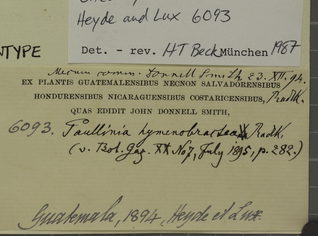 Heyde and Lux 6093
NTYPE
Det. - rev. HT Beck München 1987
Mecum comm. Donnell Smith 23.XII.94.
EX PLANTIS GUATEMALENSIBUS NECNON SALVADORENSIBUS
HONDURENSIBUS NICARAGUENSIBUS COSTARICENSIBUS, Radlk.
QUAS EDIDIT JOHN DONNELL SMITH,
6093. Paullinia hymenobractea Radlk.
(v. Bot. Gaz. XX. No 7, July 1895, p. 282.)
Guatemala, 1894, Heyde et Lux.